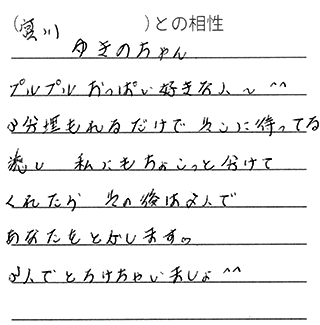 (宮川 )との相性
ゆきのちゃん
プルプル おっぱい好きな人〜^^
3分埋もれるだけで そこに待ってる
癒し 私にもちょこっと分けて
くれたら その後は2人で
あなたをとかします。
2人でとろけちゃいましょ^^